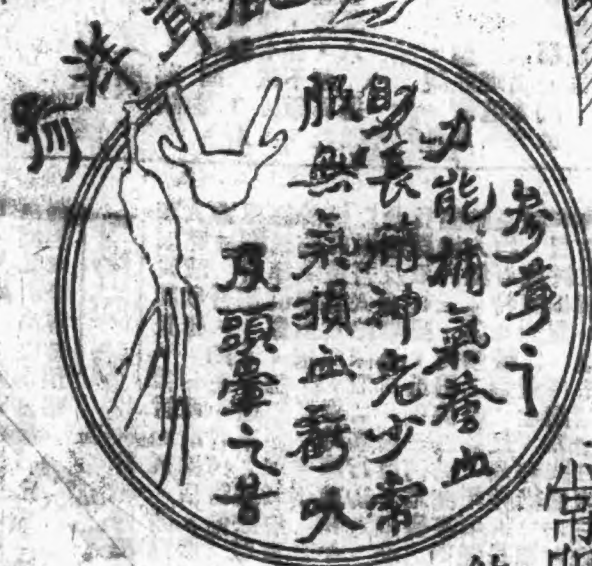 參茸之
功能補氣養血
助長精神老少常
服無氣損血虧以
及頭暈之苦
茸
常